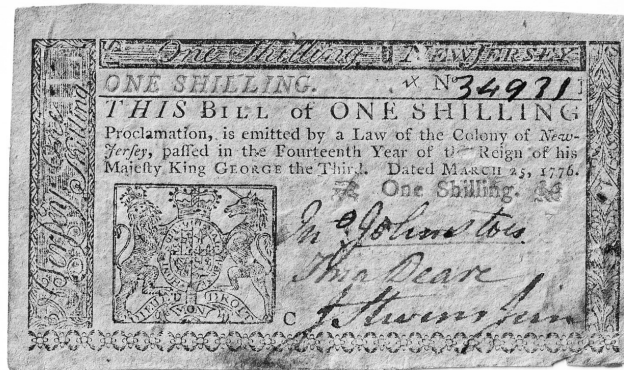 One Shilling. NEW JERSEY
ONE SHILLING. No 34931
THIS BILL of ONE SHILLING
Proclamation, is emitted by a Law of the Colony of New-
Jerſey, paſſed in the Fourteenth Year of the Reign of his
Majeſty King GEORGE the Third. Dated MARCH 25, 1776.
One Shilling.
Jno Johnston
Tho Deare
C